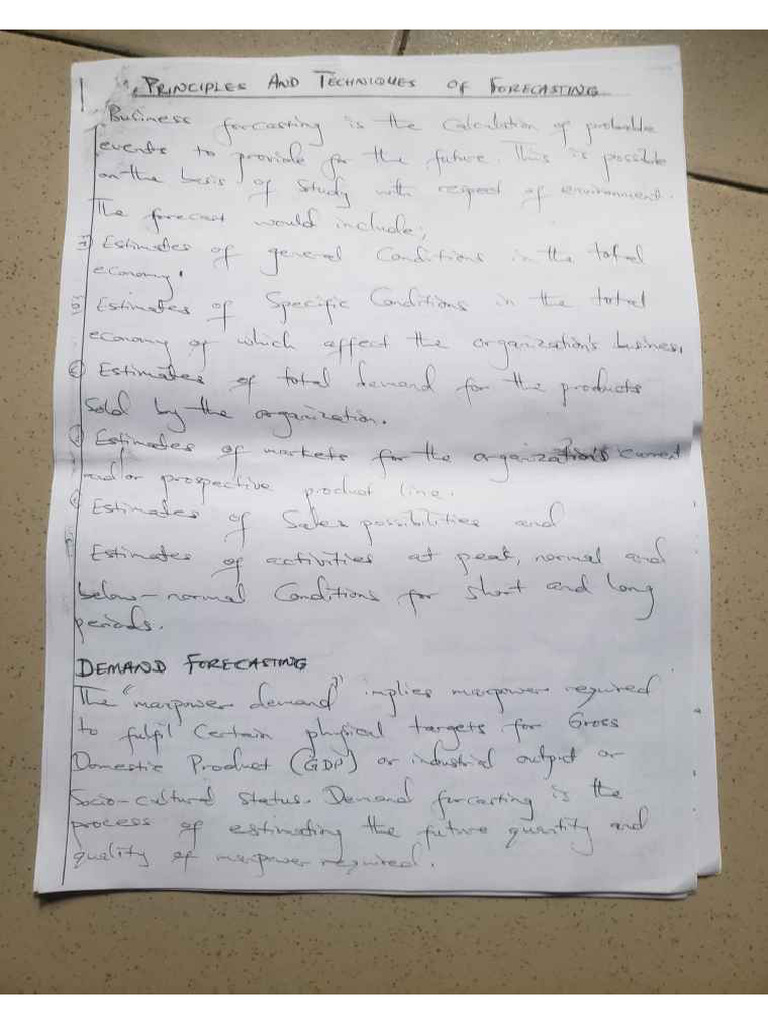 PRINCIPLES AND TECHNIQUES OF FORECASTING
Business forcasting is the calculation of probable
events to provide for the future. This is possible
on the basis of study with respect of environment.
The forecast would include;
a) Estimates of general Conditions in the total
economy.
b) Estimates of Specific Conditions in the total
economy of which affect the organization's business.
c) Estimates of total demand for the products
Sold by the organization.
d) Estimates of markets for the organization's current
and/or prospective product line.
e) Estimates of Sales possibilities and
Estimates of activities at peak, normal and
below-normal Conditions for short and long
periods.
DEMAND FORECASTING
The "manpower demand" implies manpower required
to fulfil Certain physical targets for Gross
Domestic Product (GDP) or industrial output or
Socio-cultural Status. Demand forcasting is the
process of estimating the future quantity and
quality of manpower required.